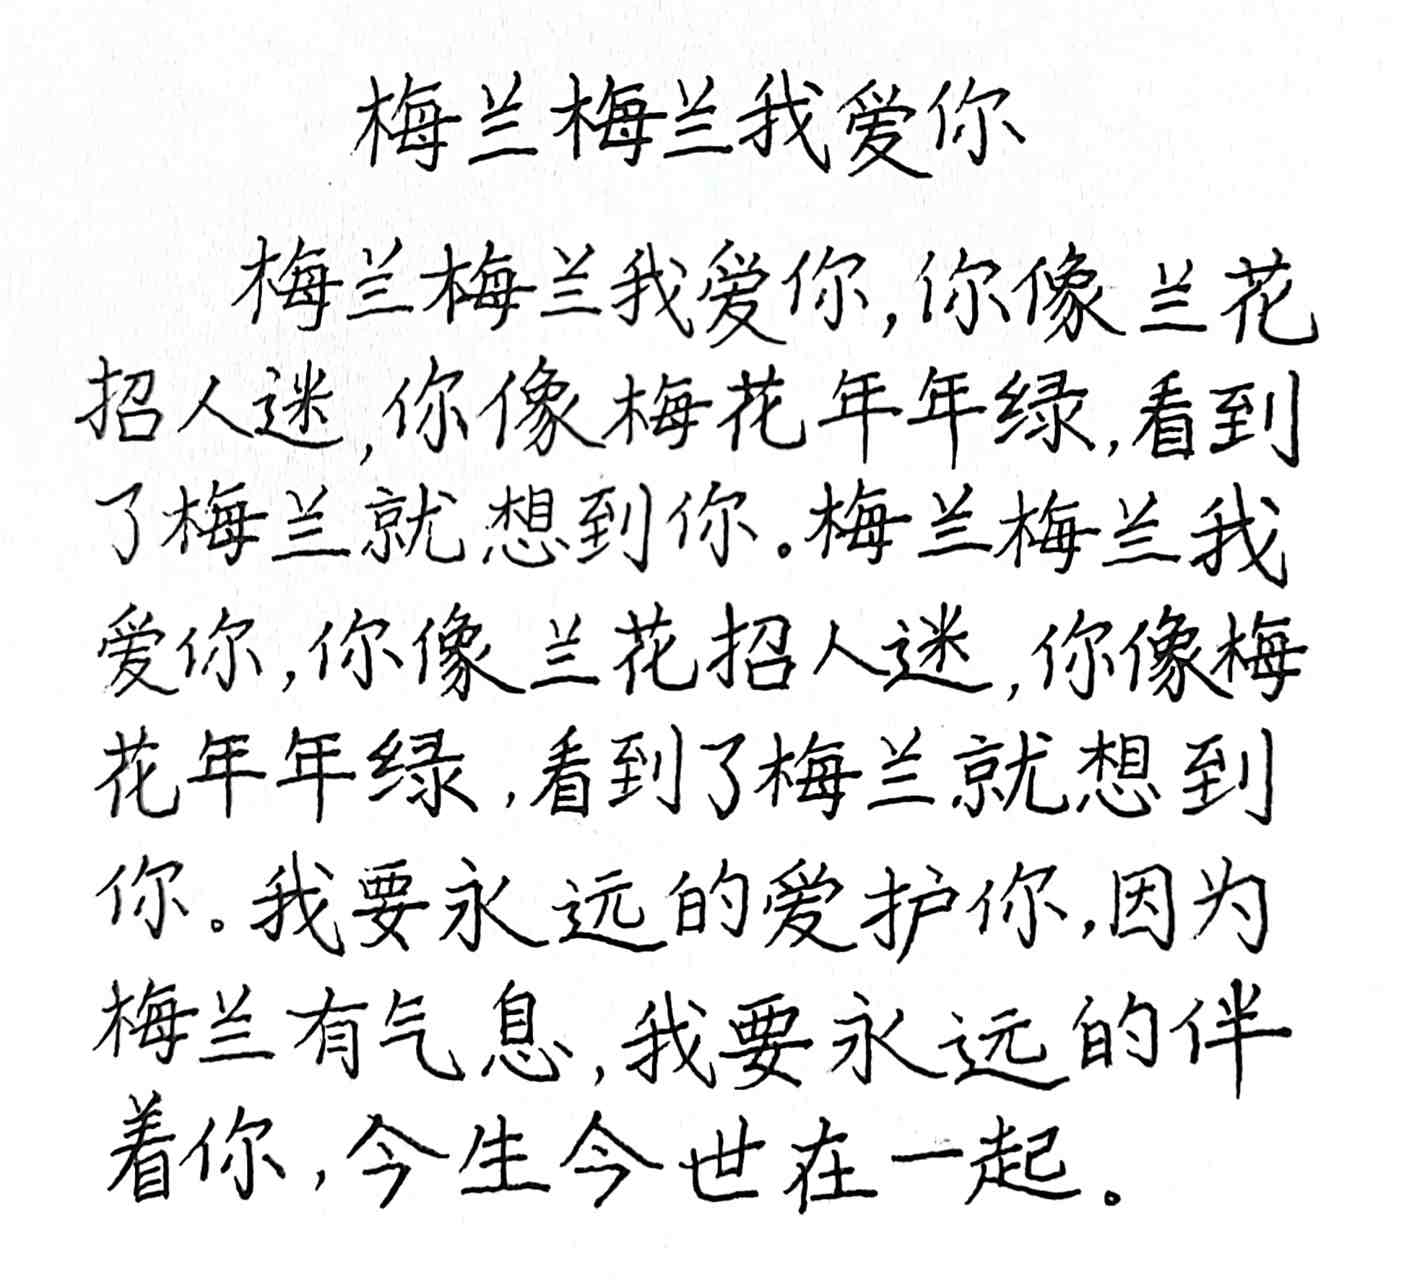 梅兰梅兰我爱你
梅兰梅兰我爱你,你像兰花
招人迷,你像梅花年年绿,看到
了梅兰就想到你。梅兰梅兰我
爱你,你像兰花招人迷,你像梅
花年年绿,看到了梅兰就想到
你。我要永远的爱护你,因为
梅兰有气息,我要永远的伴
着你,今生今世在一起。